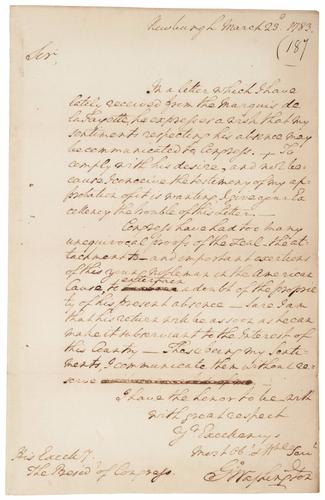 Newburgh March 23d. 1783.
(187
Sir,
In a letter which I have
lately received from the Marquis de
la Fayette, he expresses a wish that my
sentiments respecting his absence may
be communicated to Congress. — To
comply with his desire, and not be-
cause I conceive the testimony of my ap-
probation of it is wanting, I give your Ex-
cellency the trouble of this letter. —
Congress have had too many
unequivocal proofs of the Zeal, the at-
tachment to — and important exertions
of this young Nobleman in the American
Cause, to entertain a doubt of the proprie-
ty of his present absence — Sure I am
that his return will be as soon as he can
make it subservient to the Interest of
this Country — These being my Senti-
ments, I communicate them without re-
serve
I have the honor to be with
with great respect
Yr Excellency's
Most Ob. & Hble Servt
Go: Washington
His Excelly.
The Presidt. of Congress.